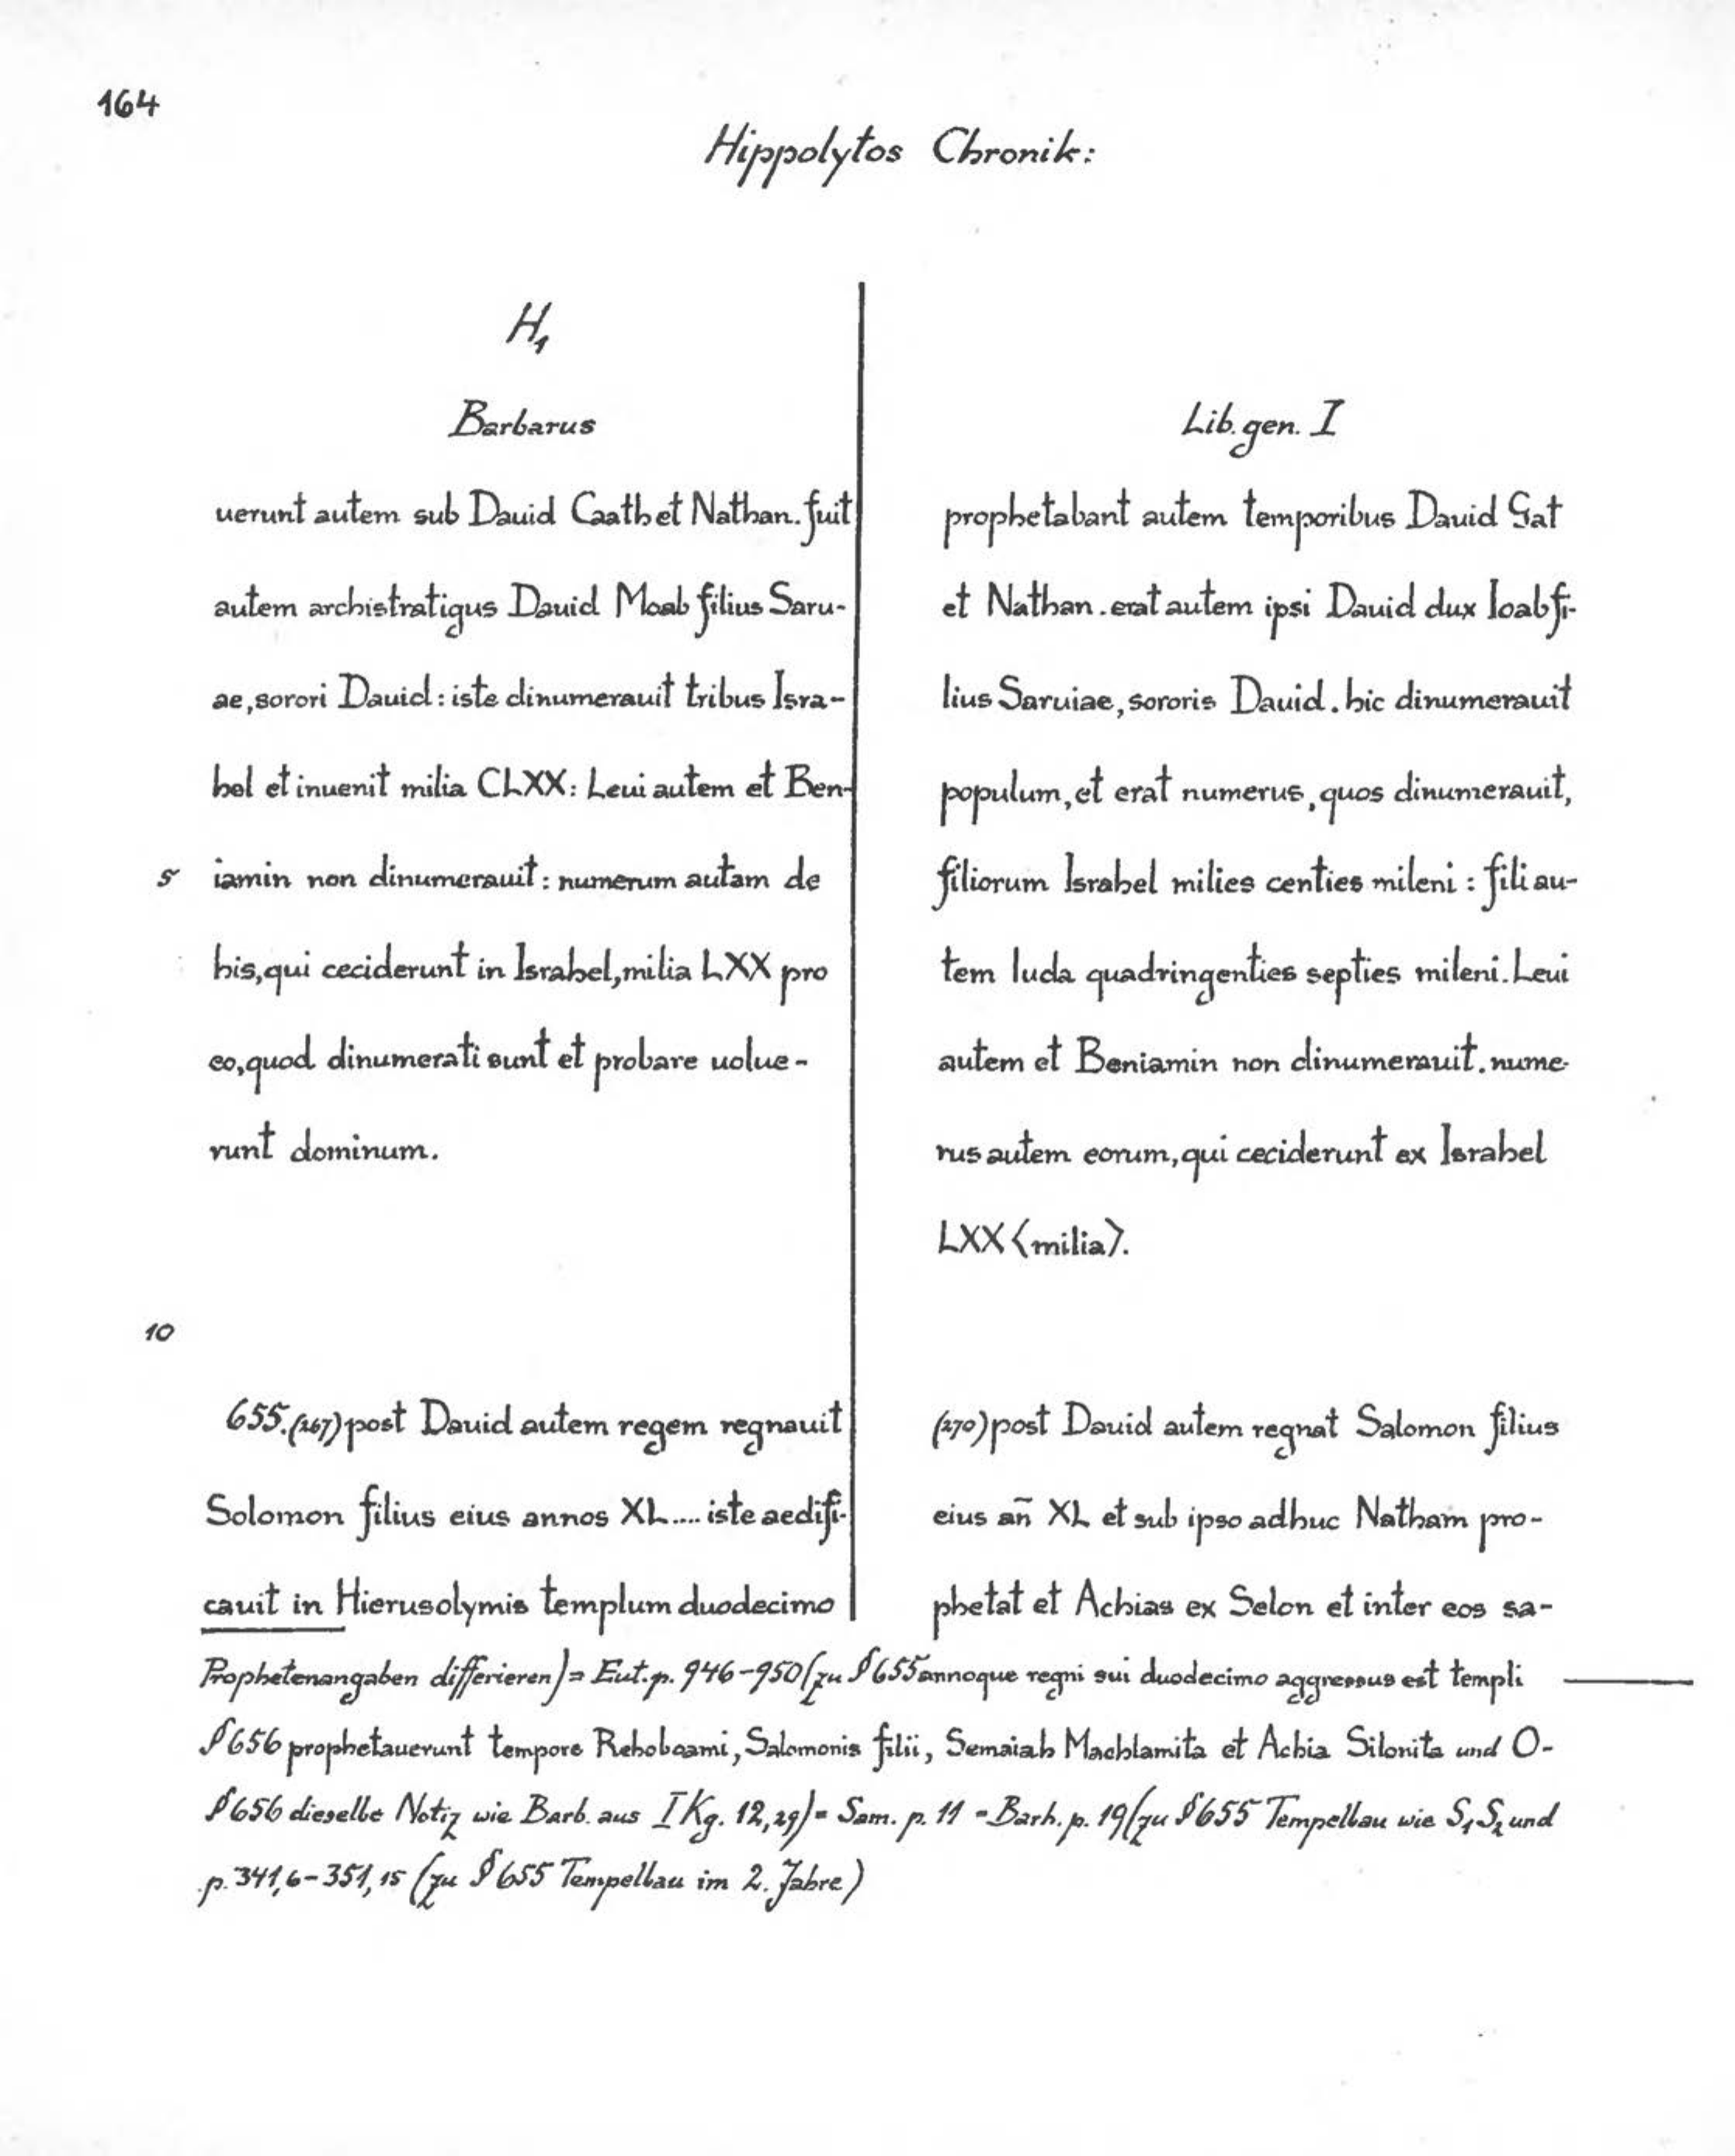 164
Hippolytos Chronik:
H₁
Barbarus
uerunt autem sub Dauid Caath et Nathan. fuit
autem archistratigus Dauid Moab filius Saru-
ae, sorori Dauid: iste dinumerauit tribus Isra-
hel et inuenit milia CLXX: Leui autem et Ben-
5 iamin non dinumerauit: numerum autam de
his, qui ceciderunt in Israhel, milia LXX pro
eo, quod dinumerati sunt et probare uolue-
runt dominum.
10
655. (267) post Dauid autem regem regnauit
Solomon filius eius annos XL.... iste aedifi-
cauit in Hierusolymis templum duodecimo
Lib. gen. I
prophetabant autem temporibus Dauid Gat
et Nathan. erat autem ipsi Dauid dux Ioab fi-
lius Saruiae, sororis Dauid. hic dinumerauit
populum, et erat numerus, quos dinumerauit,
filiorum Israhel milies centies mileni: fili au-
tem Iuda quadringenties septies mileni. Leui
autem et Beniamin non dinumerauit. nume-
rus autem eorum, qui ceciderunt ex Israhel
LXX <milia>.
(270) post Dauid autem regnat Salomon filius
eius añ XL et sub ipso adhuc Natham pro-
phetat et Achias ex Selon et inter eos sa-
Prophetenangaben differieren) = Eut. p. 946-950 (zu § 655 annoque regni sui duodecimo aggressus est templi
§ 656 prophetauerunt tempore Rehoboami, Salomonis filii, Semaiah Machlamita et Achia Silonita und O-
§ 656 dieselbe Notiz wie Barb. aus I Kg. 12,29) = Sam. p. 11 = Barh. p. 19 (zu § 655 Tempelbau wie S₁ S₂ und
p. 341,6-351,15 (zu § 655 Tempelbau im 2. Jahre)